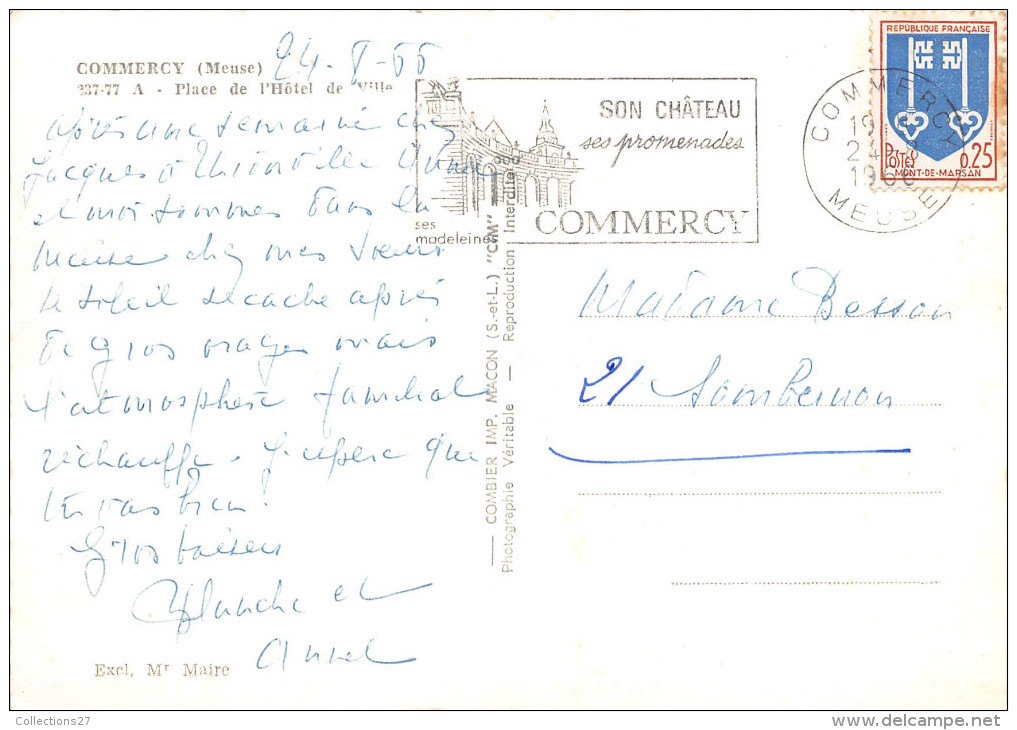 COMMERCY (Meuse) 24-8-66
237-77 A - Place de l'Hôtel de Ville
après une semaine chez
Jacques à Thionville Anne
et moi sommes dans la
Meuse chez mes sœurs
le soleil se cache après
de gros orages mais
l'atmosphère familial
réchauffe. J'espère que
tu vas bien!
Gros baisers
Blanche et
Annel
Excl. Mr Maire
COMBIER IMP. MACON (S.-et-L.) "CIM"
Photographie Véritable — Reproduction Interdite
SON CHÂTEAU
ses promenades
ses
madeleines
COMMERCY
COMMERCY
24-8
1966
MEUSE
REPUBLIQUE FRANÇAISE
POSTES 0,25
MONT-DE-MARSAN
Madame Besson
21 Sombernon
Collections27
www.delcampe.net